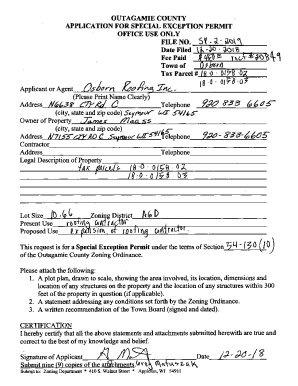 OUTAGAMIE COUNTY
APPLICATION FOR SPECIAL EXCEPTION PERMIT
OFFICE USE ONLY
FILE NO. SY-2-2019
Date Filed 12-20-2018
Fee Paid
Town of Osborn
Tax Parcel # 18-0-0158-02
18-0-0158-03
Applicant or Agent Osborn Roofing Inc.
(Please Print Name Clearly)
Address N6638 CTY Rd C Telephone 920-833-6605
(city, state and zip code) Seymour WI 54165
Owner of Property James Maass
Address N7155 CTY RD C Seymour WI 54165 Telephone 920-833-6605
(city, state and zip code)
Contractor
Address Telephone
Legal Description of Property
tax parcels 18-0-0158-02
18-0-0158-03
Lot Size 10.66 Zoning District AGD
Present Use roofing contractor
Proposed Use expansion of roofing contractor
This request is for a Special Exception Permit under the terms of Section 54-130(10)
of the Outagamie County Zoning Ordinance.
Please attach the following:
1. A plot plan, drawn to scale, showing the area involved, its location, dimensions
and location of any structures on the property and the location of any structures within 300
feet of the property in question (if applicable).
2. A statement addressing any conditions set form by the Zoning Ordinance.
3. A written recommendation of the Town Board (signed and dated).
CERTIFICATION
I hereby certify that all the above statements and attachments submitted herewith are true and correct
to the best of my knowledge and belief.
Signature of Applicant Date 12-20-18
Submit nine (9) copies of the attachments
Submit to: Zoning Department * 410 S. Walnut Street * Appleton, WI 54911